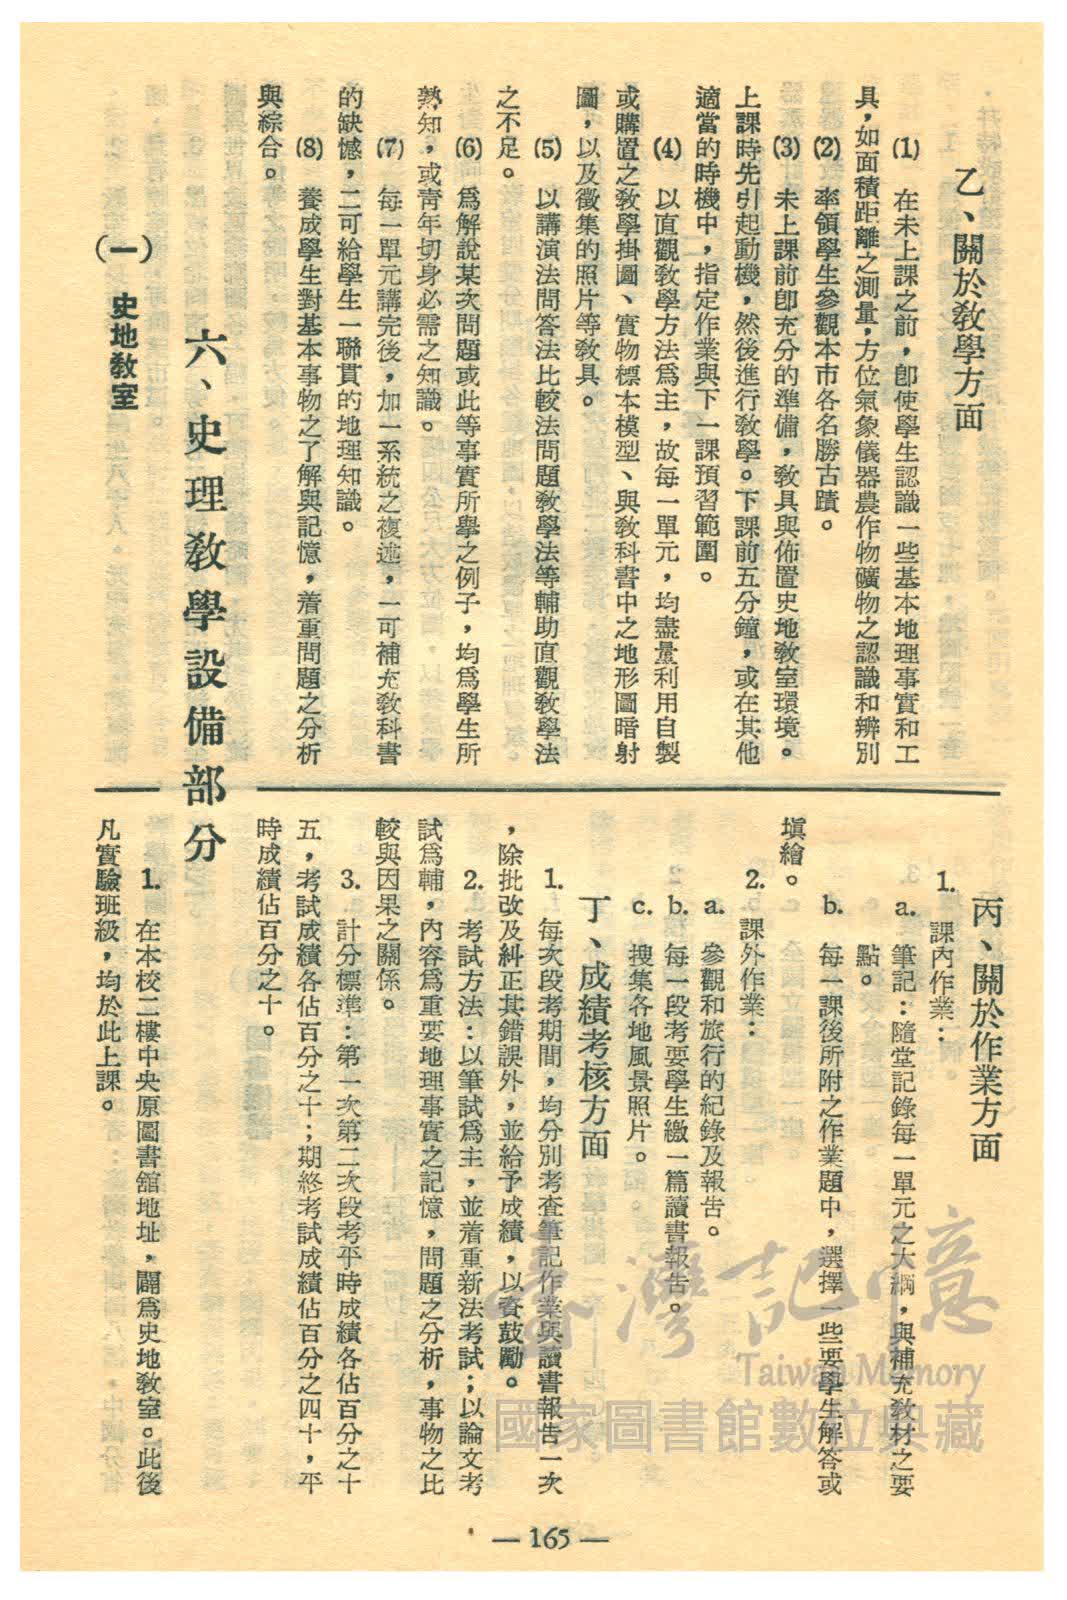 乙、關於教學方面
(1) 在未上課之前，卽使學生認識一些基本地理事實和工
具，如面積距離之測量，方位氣象儀器農作物礦物之認識和辨別
(2) 率領學生參觀本市各名勝古蹟。
(3) 未上課前卽充分的準備，敎具與佈置史地敎室環境。
上課時先引起動機，然後進行敎學。下課前五分鐘，或在其他
適當的時機中，指定作業與下一課預習範圍。
(4) 以直觀敎學方法爲主，故每一單元，均盡量利用自製
或購置之敎學掛圖、實物標本模型、與敎科書中之地形圖暗射
圖，以及徵集的照片等敎具。
(5) 以講演法問答法比較法問題敎學法等輔助直觀敎學法
之不足。
(6) 爲解說某次問題或此等事實所學之例子，均爲學生所
熟知，或靑年切身必需之知識。
(7) 每一單元講完後，加一系統之複述，一可補充敎科書
的缺憾，二可給學生一聯貫的地理知識。
(8) 養成學生對基本事物之了解與記憶，着重問題之分析
與綜合。
丙、關於作業方面
1. 課內作業：
a. 筆記：隨堂記錄每一單元之大綱，與補充敎材之要
點。
b. 每一課後所附之作業題中，選擇一些要學生解答或
塡繪。
2. 課外作業：
a. 參觀和旅行的紀錄及報告。
b. 每一段考要學生繳一篇讀書報告。
c. 搜集各地風景照片。
丁、成績考核方面
1. 每次段考期間，均分別考查筆記作業與讀書報告一次
，除批改及糾正其錯誤外，並給予成績，以資鼓勵。
2. 考試方法：以筆試爲主，並着重新法考試；以論文考
試爲輔，內容爲重要地理事實之記憶，問題之分析，事物之比
較與因果之關係。
3. 計分標準：第一次第二次段考平時成績各佔百分之十
五，考試成績各佔百分之十；期終考試成績佔百分之四十，平
時成績佔百分之十。
六、史理敎學設備部分
(一) 史地敎室
1. 在本校二樓中央原圖書舘地址，闢爲史地敎室。此後
凡實驗班級，均於此上課。
— 165 —
臺灣記憶
Taiwan Memory
國家圖書館數位典藏